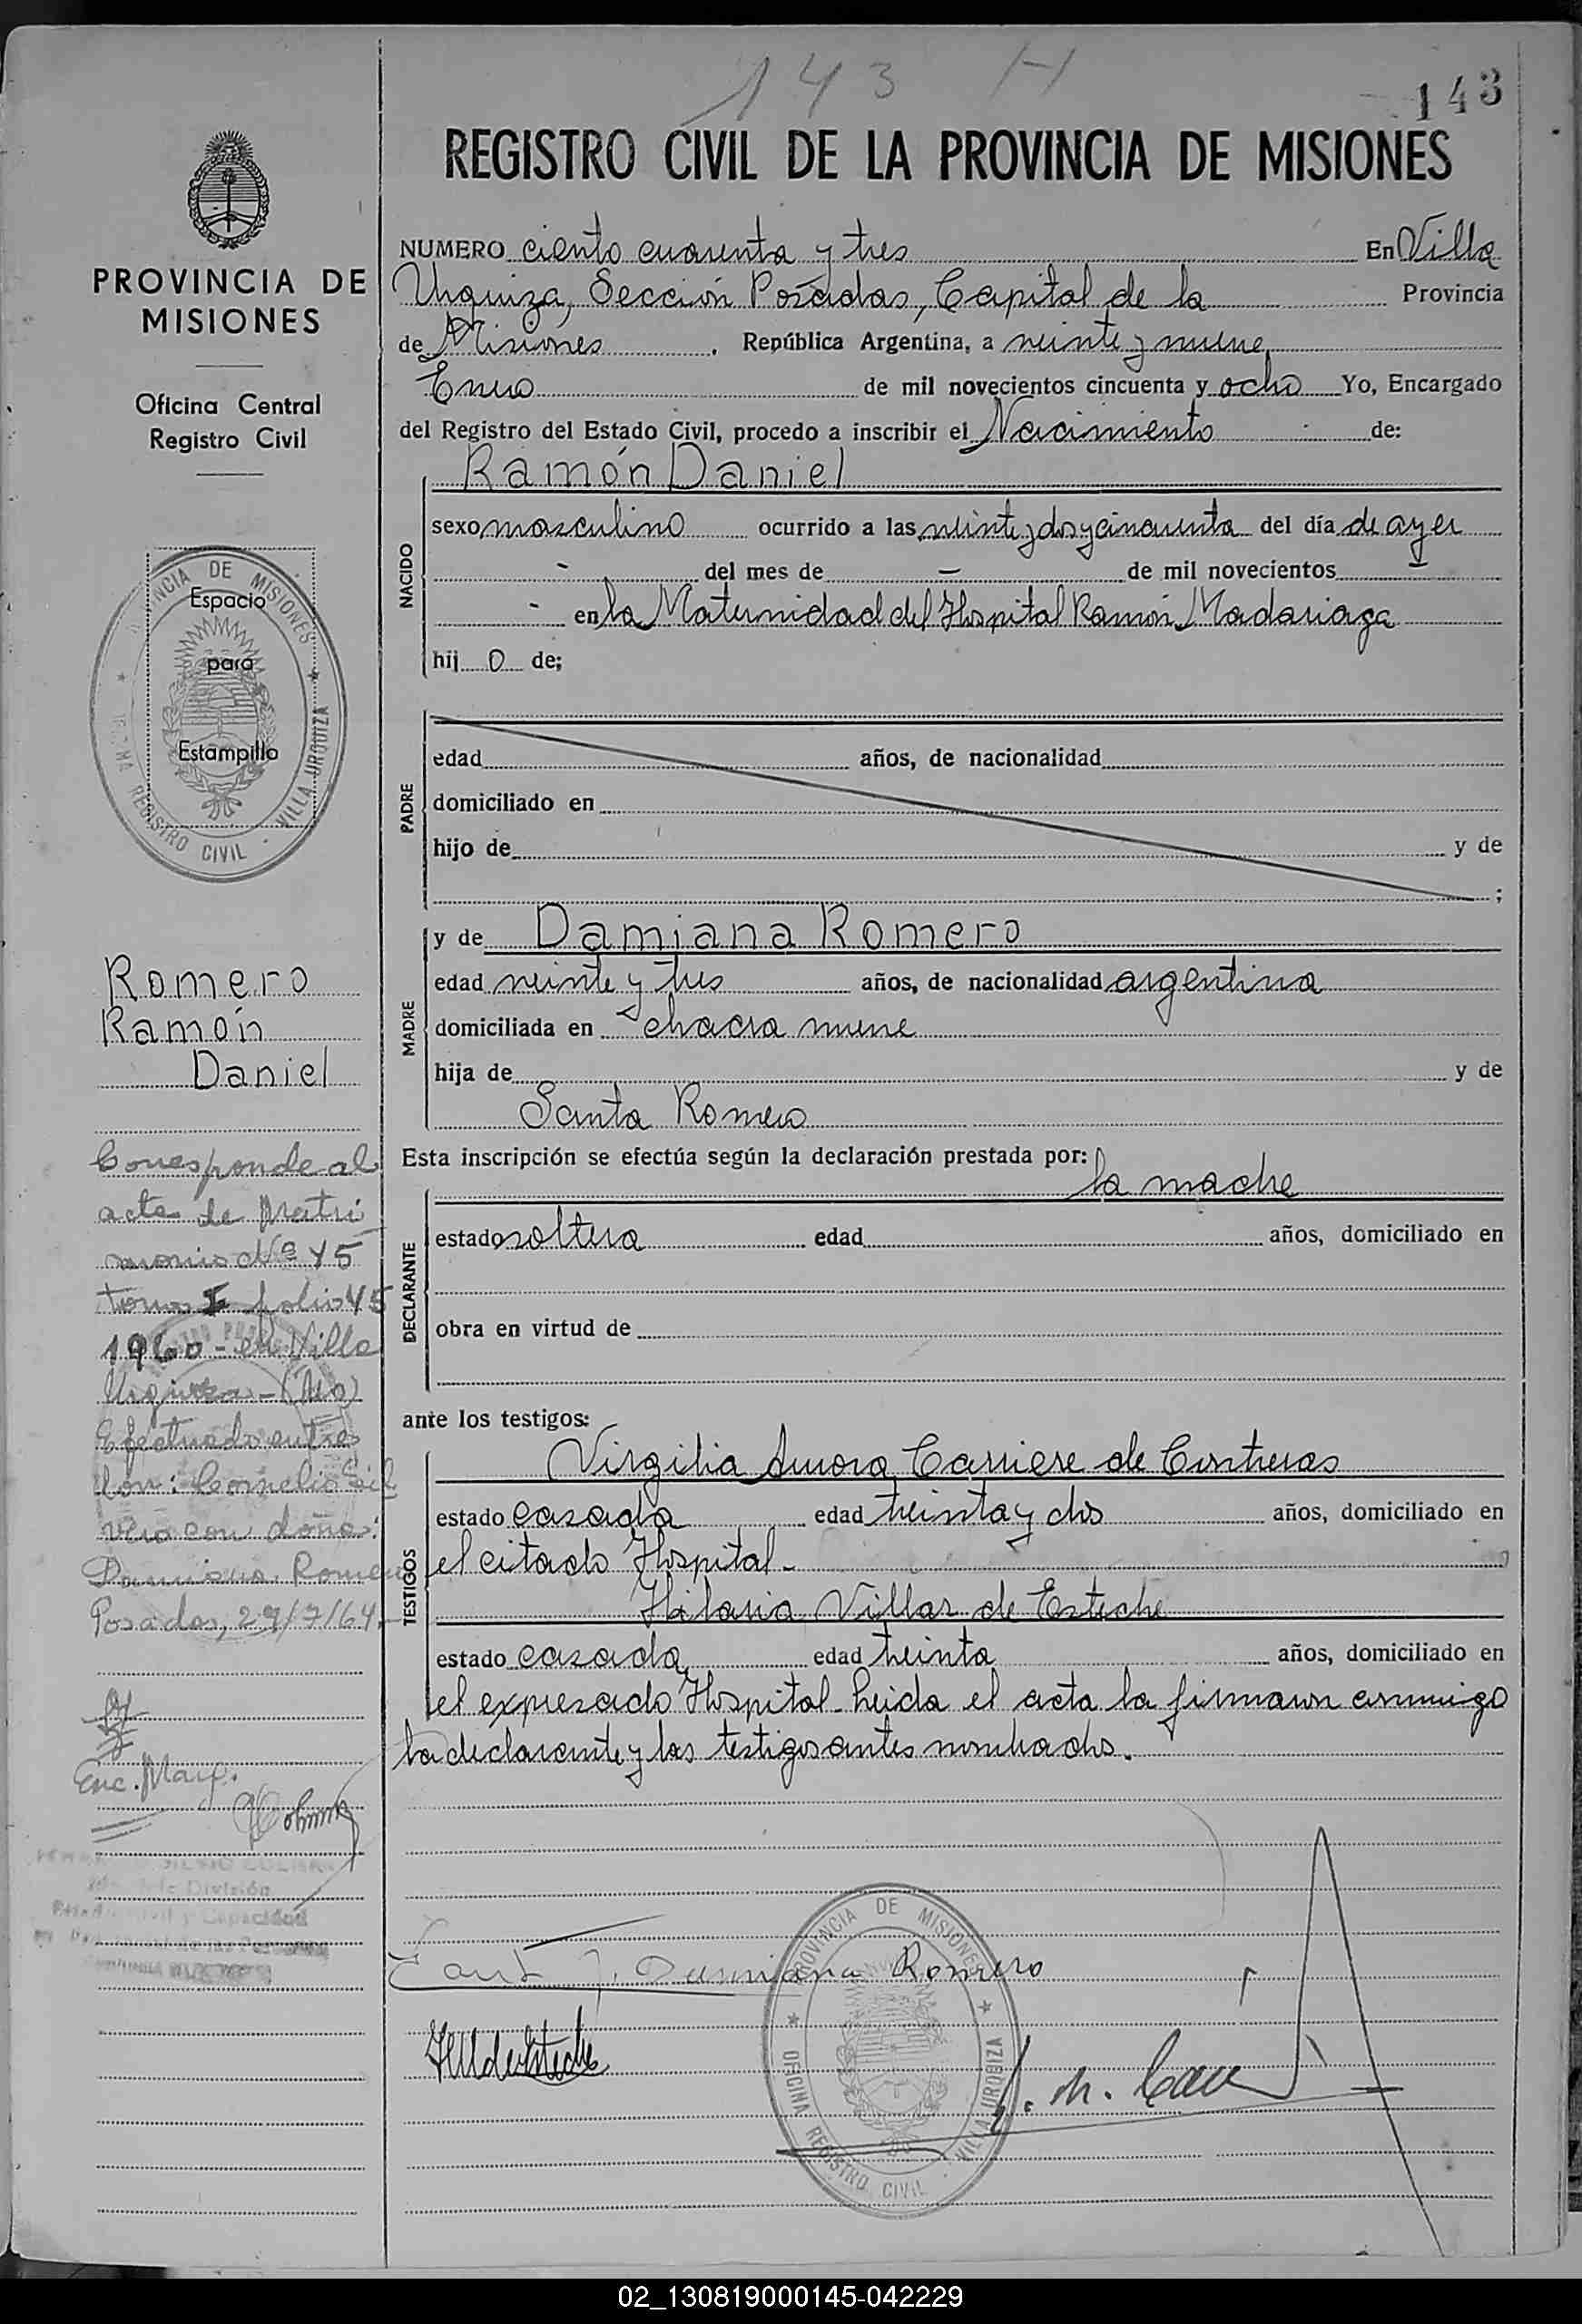 143 H
143
REGISTRO CIVIL DE LA PROVINCIA DE MISIONES
PROVINCIA DE
MISIONES
Oficina Central
Registro Civil
Espacio
para
Estampilla
PROVINCIA DE MISIONES
REGISTRO CIVIL - VILLA URQUIZA
Romero
Ramón
Daniel
Corresponde al
acta de Matri
monio Nº 45
tomo I folio 45
1960 - en Villa
Urquiza - (Ms)
Efectuado entre
don: Cornelio Sil
vero con doña:
Damiana Romero
Posadas, 29/7/64.
Enc. Marg.
División
y Capacidad
NUMERO ciento cuarenta y tres En Villa
Urquiza, Sección Posadas, Capital de la Provincia
de Misiones. República Argentina, a veinte y nueve
Enero de mil novecientos cincuenta y ocho Yo, Encargado
del Registro del Estado Civil, procedo a inscribir el Nacimiento de:
NACIDO
Ramón Daniel
sexo masculino ocurrido a las veinte y dos y cincuenta del día de ayer
- del mes de - de mil novecientos -
- en la Maternidad del Hospital Ramón Madariaga
hij o de;
PADRE
edad años, de nacionalidad
domiciliado en
hijo de y de
;
MADRE
y de Damiana Romero
edad veinte y tres años, de nacionalidad argentina
domiciliada en chacra nueve
hija de y de
Santa Romero
Esta inscripción se efectúa según la declaración prestada por:
la madre
DECLARANTE
estado soltera edad años, domiciliado en
obra en virtud de
ante los testigos:
TESTIGOS
Virgilia Aurora Carriere de Contreras
estado casada edad treinta y dos años, domiciliado en
el citado Hospital -
Hilaria Villar de Esteche
estado casada edad treinta años, domiciliado en
el expresado Hospital - Leida el acta la firmaron conmigo
la declarante y los testigos antes nombrados.
Damiana Romero
PROVINCIA DE MISIONES
OFICINA REGISTRO CIVIL - VILLA URQUIZA
02_130819000145-042229